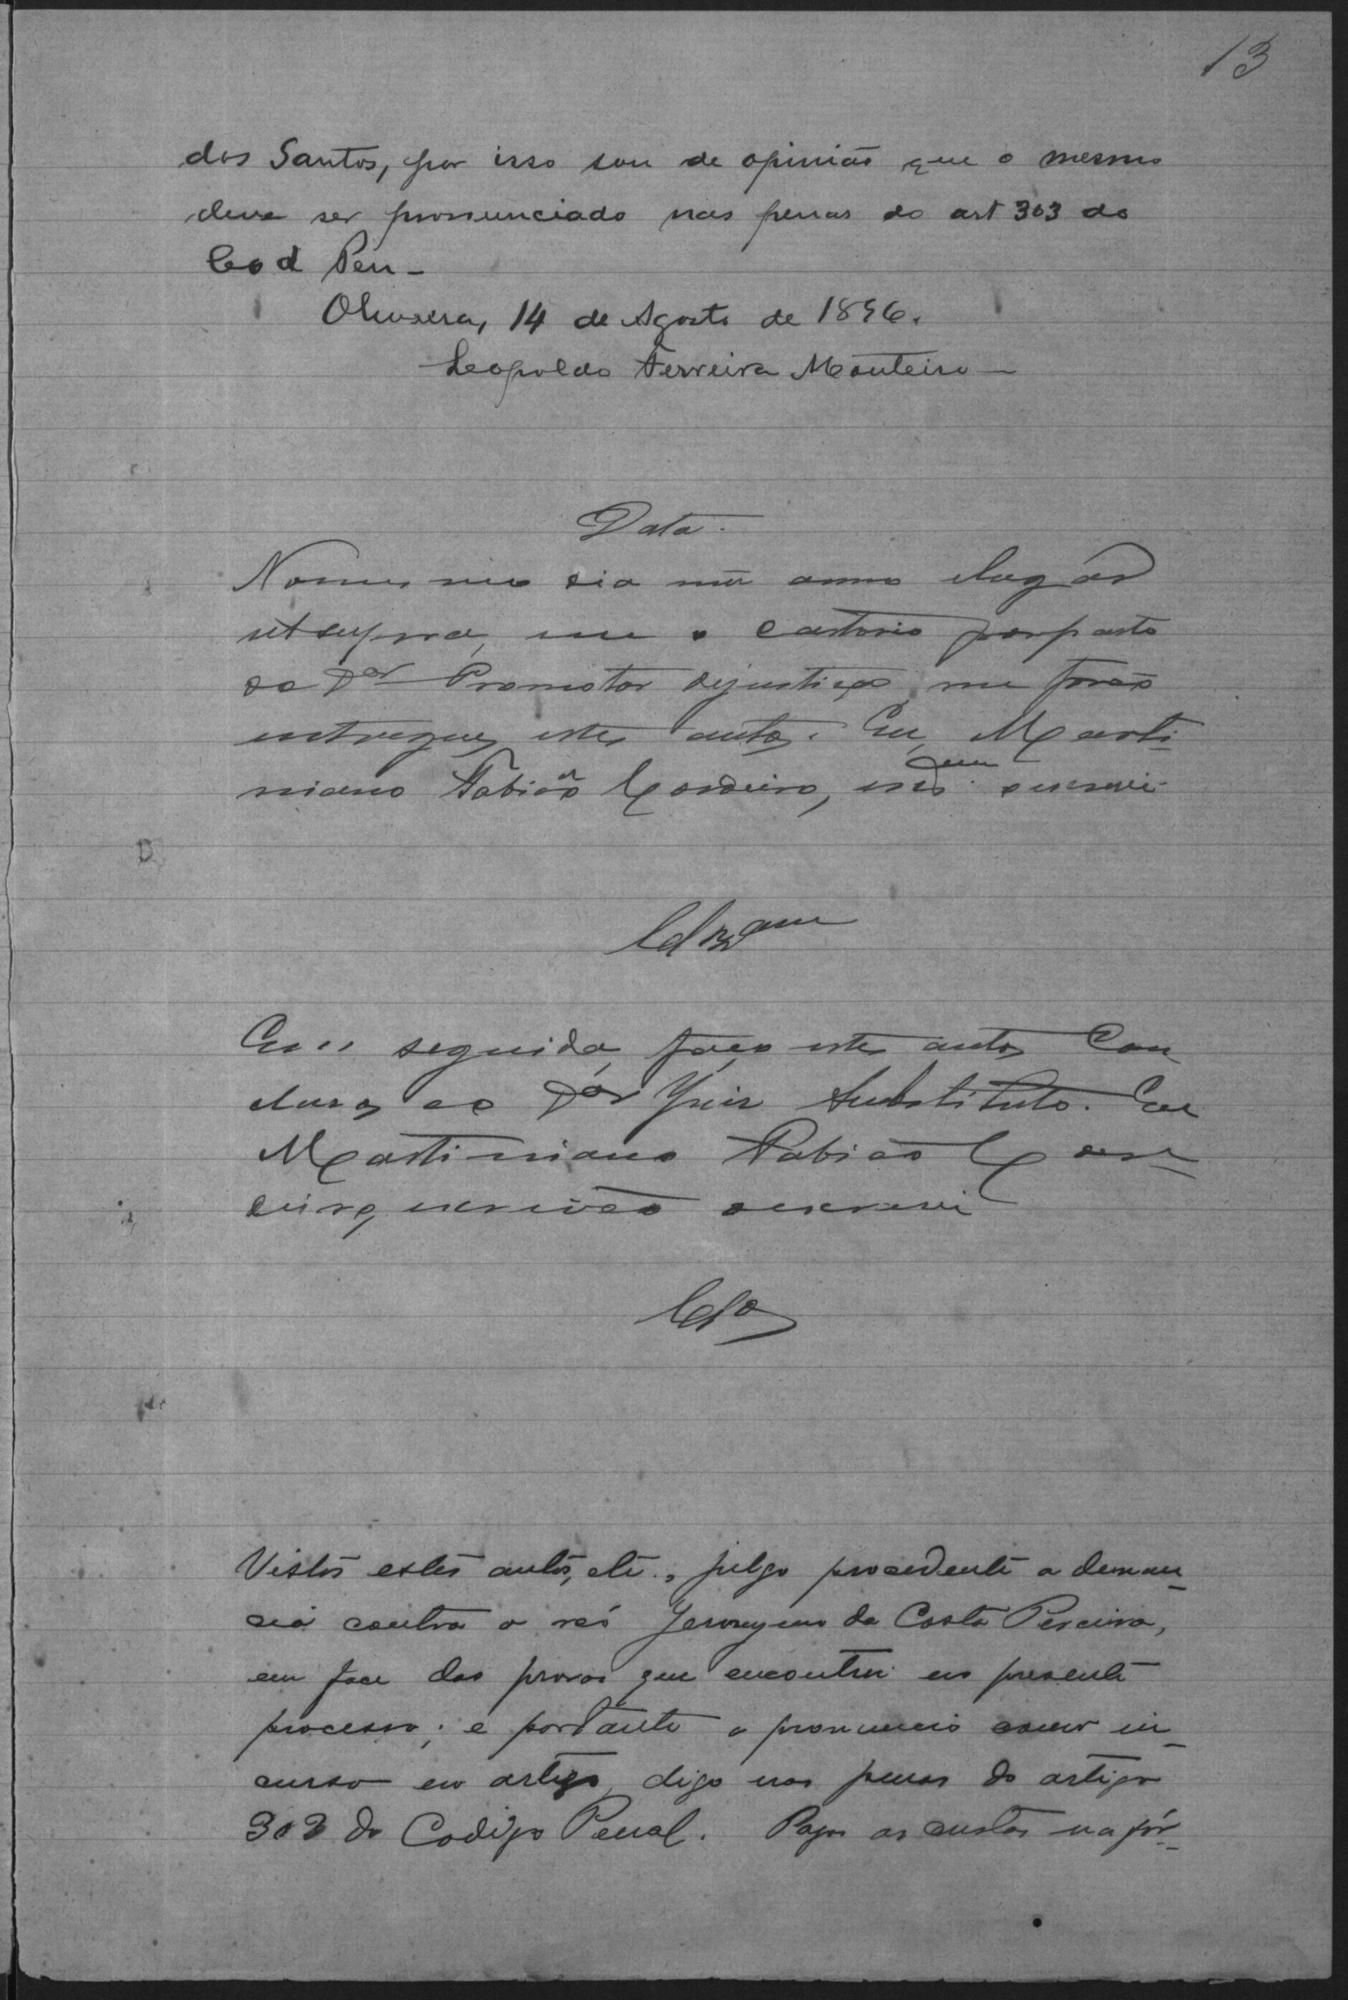 13
dos Santos, por isso sou de opinião que o mesmo
deve ser pronunciado nas penas do art 303 do
Cod Pen -
Oliveira, 14 de Agosto de 1896.
Leopoldo Ferreira Monteiro
Data.
No mesmo dia mez anno elugár
utsupra, em o cartorio porparte
do Dor Promotor dejustiça me forão
entregues estes autos. Eu, Marti-
niano Fabião Cordeiro, escrivão oescrevi
Em seguida, faço estes autos Con
clusos ao Dor Juiz Substituto. Eu
Martiniano Fabião Cor-
deiro, escrivão oescrevi
Clos
Vistos estes autos, etc., julgo procedente a denun-
cia contra o réo Jeronymo da Costa Pereira,
em face das provas que encontrei no presente
processo; e portanto o pronuncio como in-
curso no artigo, digo nas penas do artigo
303 do Codigo Penal. Pague as custas na fór-